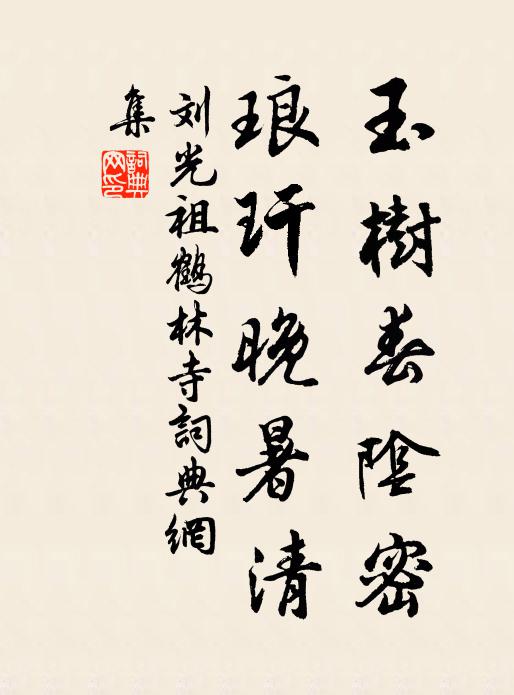 玉樹春陰密
琅玕晚暑清
刘光祖鶴林寺詞典網
集
詞典网印